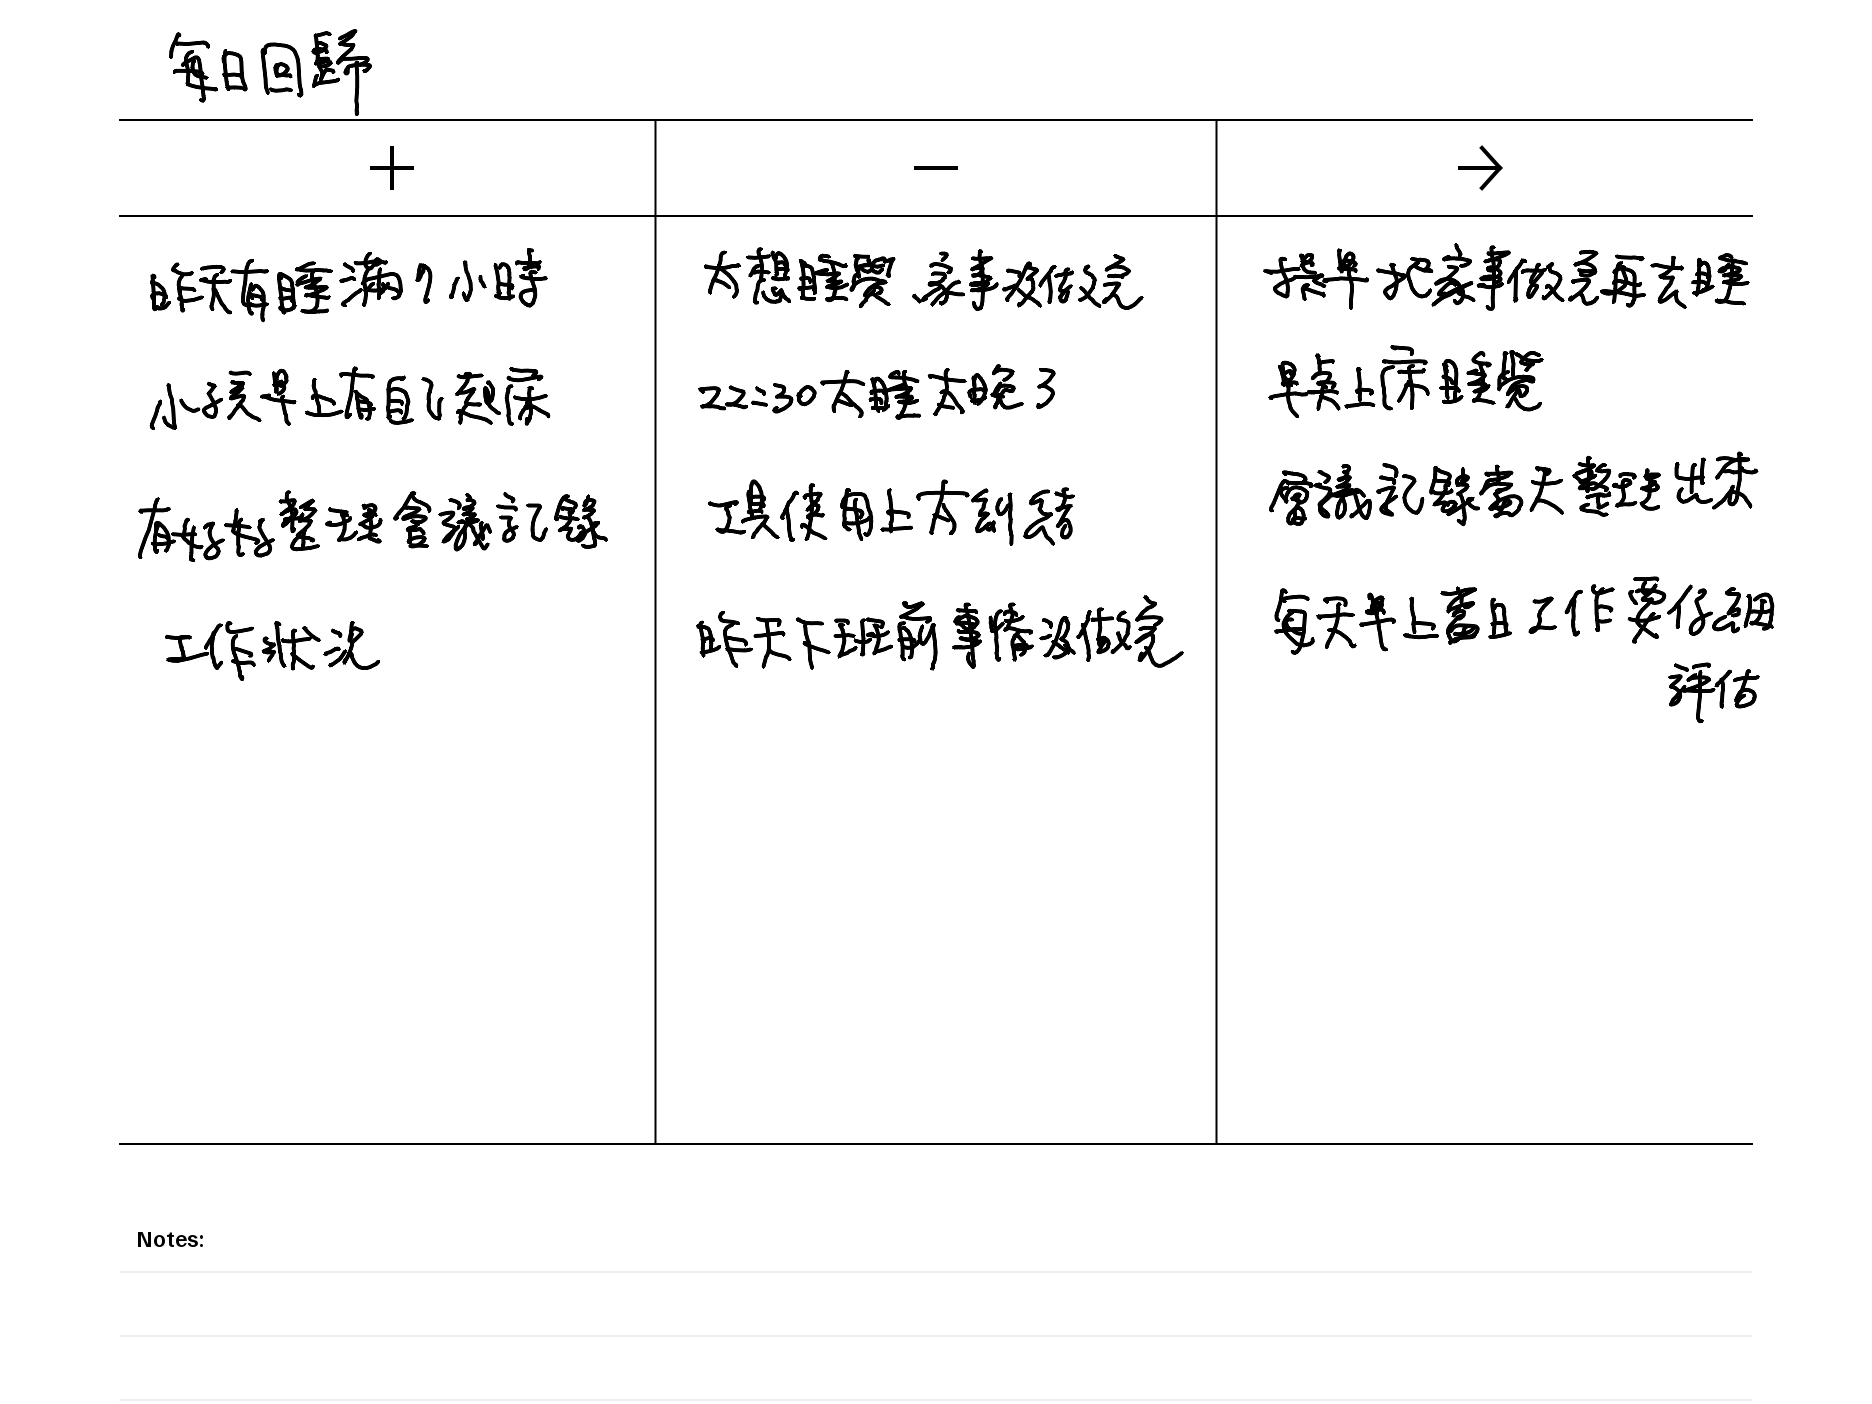 每日回歸
+
−
→
昨天有睡滿7小時
小孩早上有自己起床
有好好整理會議記錄
工作狀況
太想睡覺、家事沒做完
22:30才睡太晚了
工具使用上太糾結
昨天下班前事情沒做完
提早把家事做完再去睡
早點上床睡覺
會議記錄當天整理出來
每天早上當日工作要仔細
評估
Notes: